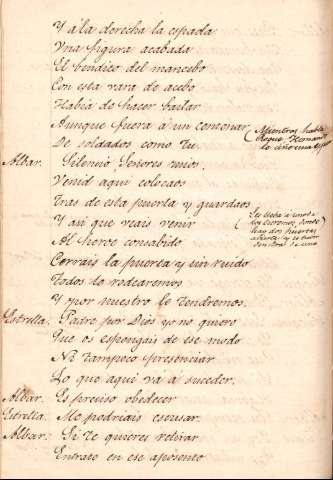 Y á la derecha la espada
Vna figura acabada
El bendito del mancebo
Con esta vara de acebo
Habia de hacer bailar
Aunque fuera á un centenar
De soldados como tu.
(Mientras habla
Roque Hernando
le
Albar. Silencio, Señores mios.
Venid aqui colocaos
Tras de esta puerta y guardaos
Y asi que veais venir
Al heroe consabido
Corrais la puerta y sin ruido
Todos lo rodearemos
Y por nuestro le tendremos.
(Les lleva á uno de
los estremos, donde
hay dos puertas
abierta y se
dentro de una
Estrella. Padre por Dios yo no quiero
Que os espongais de ese modo
Ni tampoco presenciar
Lo que aqui vá á suceder.
Albar. Es preciso obedecer
Estrella. Me podriais escusar.
Albar. Si te quieres retirar
Entrate en ese aposento